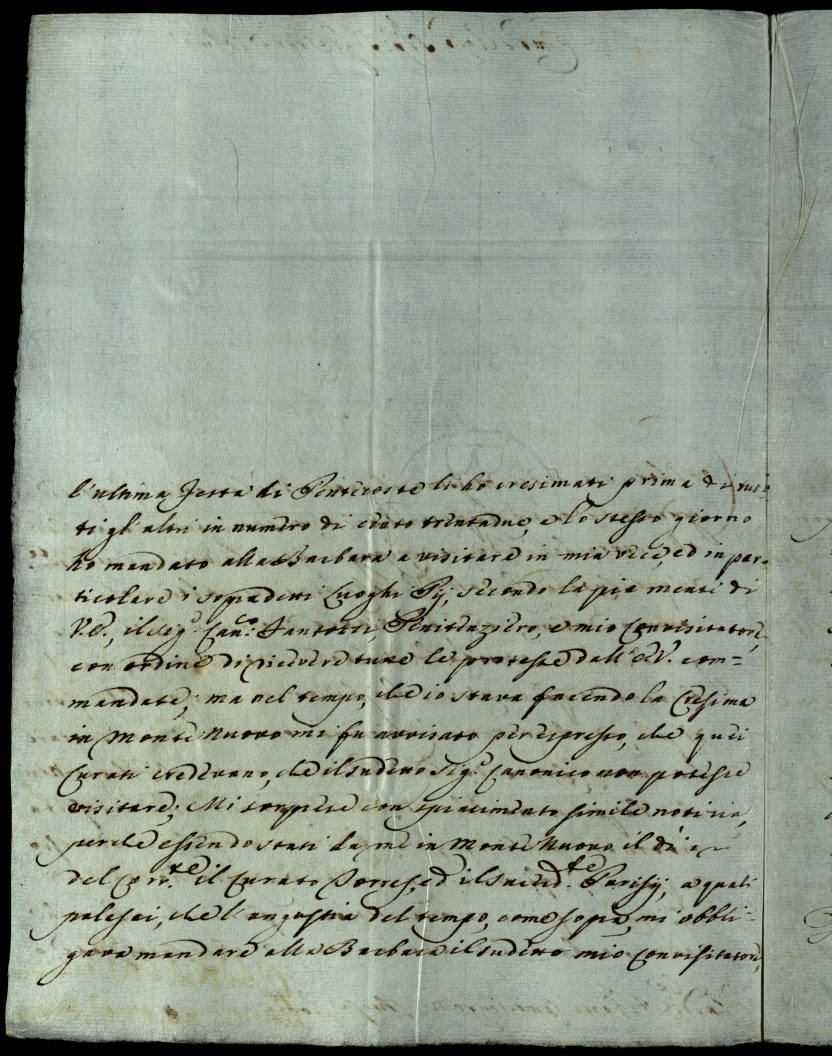 l'ultima festa di Pentecoste li ho cresimati prima di tut=
ti gl'altri in numero di cento trentadue, e lo stesso giorno
ho mandato alla Barbara a visitare in mia vece, ed in par=
ticolare i sopradetti Luoghi Pij, secondo la pia mente di
V.E., il Sig.r Can.co Santotti, Penitenziero, e mio Convisitatore,
con ordine di ricevere tutte le proteste dall'E.V. com=
mandate; ma nel tempo, che io stava facendo la Cresima
in Monte Nuovo mi fu avvisato per espresso, che quei
Curati credevano, che il sudetto Sig.r Canonico non potesse
visitare; Mi sorprese con spiacimento simile notizia,
perche essendo stati da me in Monte Nuovo il dì
del corr.te il Curato Torres, ed il Sacerd.te Parisij, a quali
palesai, che l'angustia del tempo, come sopra, mi obbli=
gava mandare alla Barbara il sudetto mio Convisitatore,